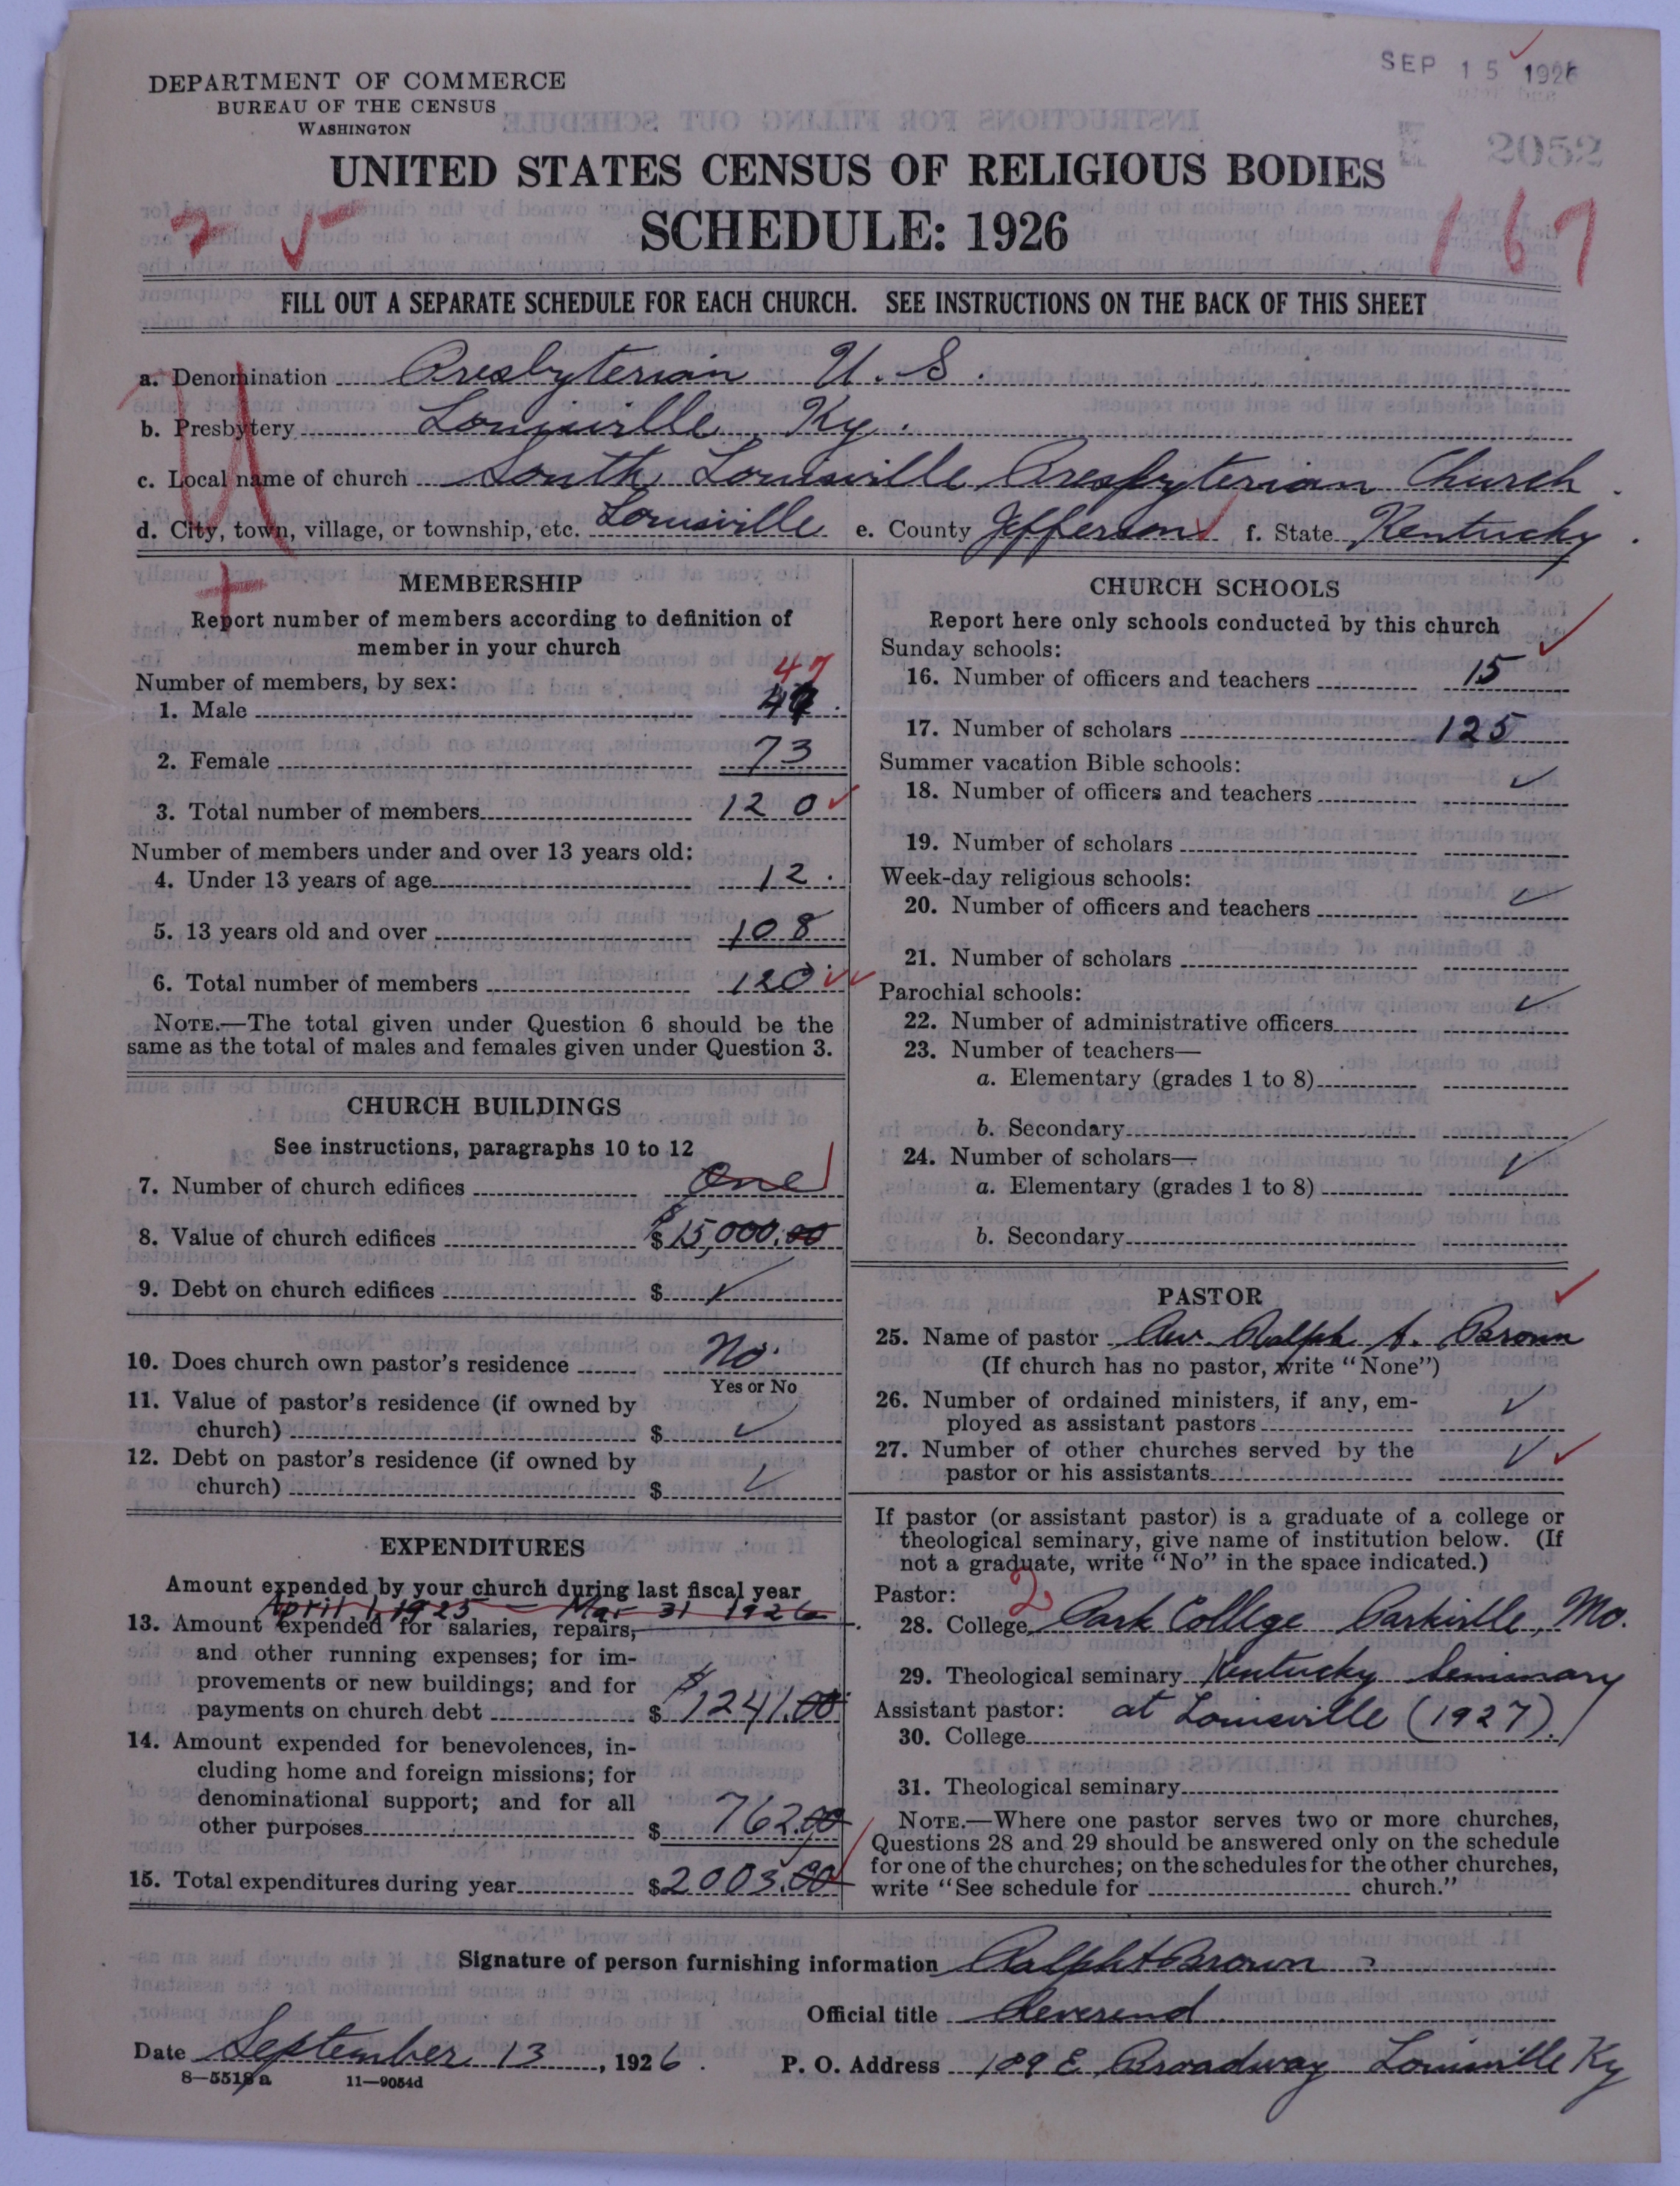 SEP 15 1926
DEPARTMENT OF COMMERCE
BUREAU OF THE CENSUS
WASHINGTON
2052
UNITED STATES CENSUS OF RELIGIOUS BODIES
SCHEDULE: 1926
167
FILL OUT A SEPARATE SCHEDULE FOR EACH CHURCH. SEE INSTRUCTIONS ON THE BACK OF THIS SHEET
a. Denomination Presbyterian U. S.
b. Presbytery Louisville, Ky.
c. Local name of church South Louisville Presbyterian Church.
d. City, town, village, or township, etc. Louisville e. County Jefferson f. State Kentucky.
MEMBERSHIP
Report number of members according to definition of
member in your church
Number of members, by sex:
47
1. Male 47
2. Female 73
3. Total number of members 120
Number of members under and over 13 years old:
4. Under 13 years of age 12.
5. 13 years old and over 108
6. Total number of members 120
NOTE.—The total given under Question 6 should be the
same as the total of males and females given under Question 3.
CHURCH BUILDINGS
See instructions, paragraphs 10 to 12
7. Number of church edifices One
8. Value of church edifices $ $15,000.00
9. Debt on church edifices $ ✓
10. Does church own pastor's residence No.
Yes or No
11. Value of pastor's residence (if owned by
church) $ ✓
12. Debt on pastor's residence (if owned by
church) $ ✓
EXPENDITURES
Amount expended by your church during last fiscal year
April 1, 1925 — Mar 31 1926
13. Amount expended for salaries, repairs,
and other running expenses; for im-
provements or new buildings; and for
payments on church debt $ $1241.00
14. Amount expended for benevolences, in-
cluding home and foreign missions; for
denominational support; and for all
other purposes $ 762.00
15. Total expenditures during year $2003.00
CHURCH SCHOOLS
Report here only schools conducted by this church
Sunday schools:
16. Number of officers and teachers 15
17. Number of scholars 125
Summer vacation Bible schools:
18. Number of officers and teachers ✓
19. Number of scholars
Week-day religious schools:
20. Number of officers and teachers ✓
21. Number of scholars
Parochial schools:
22. Number of administrative officers ✓
23. Number of teachers—
a. Elementary (grades 1 to 8)
b. Secondary
24. Number of scholars— ✓
a. Elementary (grades 1 to 8)
b. Secondary
PASTOR
25. Name of pastor Rev. Ralph A. Brown
(If church has no pastor, write "None")
26. Number of ordained ministers, if any, em-
ployed as assistant pastors ✓
27. Number of other churches served by the
pastor or his assistants ✓
If pastor (or assistant pastor) is a graduate of a college or
theological seminary, give name of institution below. (If
not a graduate, write "No" in the space indicated.)
Pastor:
28. College 2 Park College Parkville, Mo.
29. Theological seminary Kentucky Seminary
Assistant pastor: at Louisville (1927).
30. College
31. Theological seminary
NOTE.—Where one pastor serves two or more churches,
Questions 28 and 29 should be answered only on the schedule
for one of the churches; on the schedules for the other churches,
write "See schedule for church."
Signature of person furnishing information Ralph A Brown
Official title Reverend
Date September 13, 1926. P. O. Address 109 E Broadway Louisville Ky
8—5518a 11—9054d